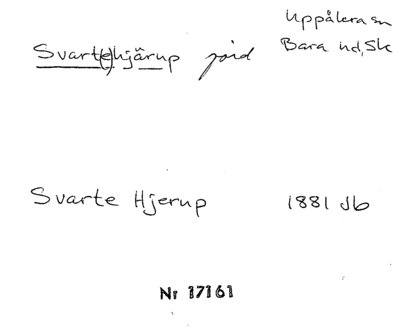 Svart(e)hjärup jord
Uppåkra sn
Bara hd, Sk
Svarte Hjerup 1881 Jb
Nr 17161